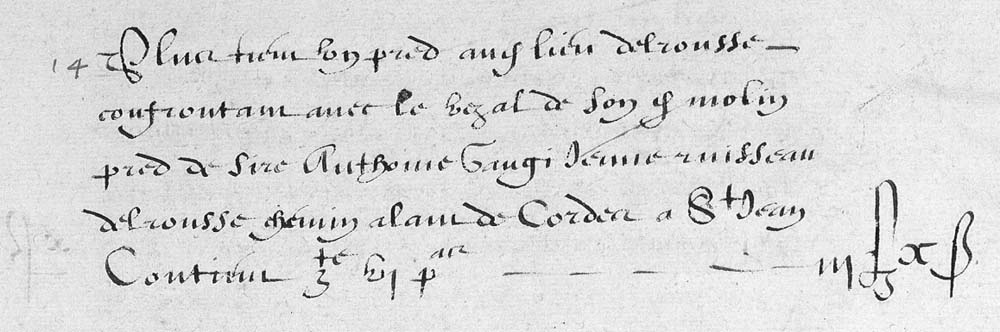 14 Plus tient ung pred aud lieu delrousse
confrontant avec le bezal de son d molin
pred de sire Anthonie Gaugi Jeune ruisseau
delrousse chemin alant de Cordes a St Jean
Contient vi p iii £ x ß